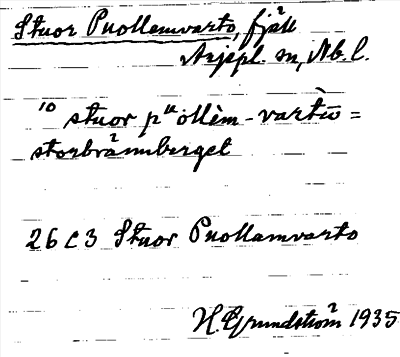 Stuor Puollamvarto, fjäll
Arjepl. sn, Nb. l.
10 stuor pᵘollèm-vartò =
storbrännberget
26 C 3 Stuor Puollamvarto
H. Grundström 1935